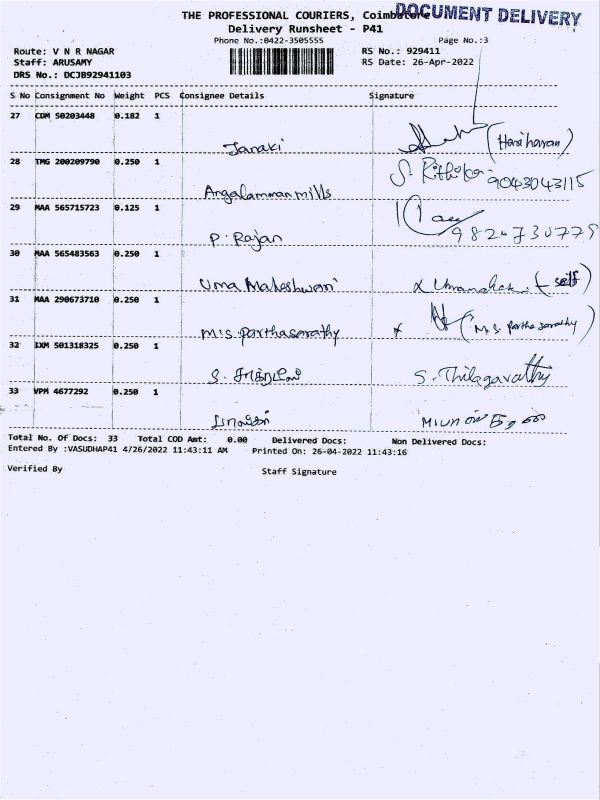 THE PROFESSIONAL COURIERS, Coimbatore
DOCUMENT DELIVERY
Delivery Runsheet - P41
Phone No.:0422-3505555 Page No.:3
Route: V N R NAGAR RS No.: 929411
Staff: ARUSAMY RS Date: 26-Apr-2022
DRS No.: DCJB92941103
S No Consignment No Weight PCS Consignee Details Signature
27 CDM 50203448 0.182 1
Janaki (Hariharan)
28 TMG 200209790 0.250 1 S. Rithika 9043043115
Angalamman mills
29 MAA 565715723 0.125 1
P. Rajan 9820730779
30 MAA 565483563 0.250 1
Uma Maheshwari (self)
31 MAA 290673710 0.250 1
M.S. Parthasarathy (M.S. Parthasarathy)
32 IXM 501318325 0.250 1
S. S. Thilagavathy
33 VPM 4677292 0.250 1
Total No. Of Docs: 33 Total COD Amt: 0.00 Delivered Docs: Non Delivered Docs:
Entered By :VASUDHAP41 4/26/2022 11:43:11 AM Printed On: 26-04-2022 11:43:16
Verified By Staff Signature